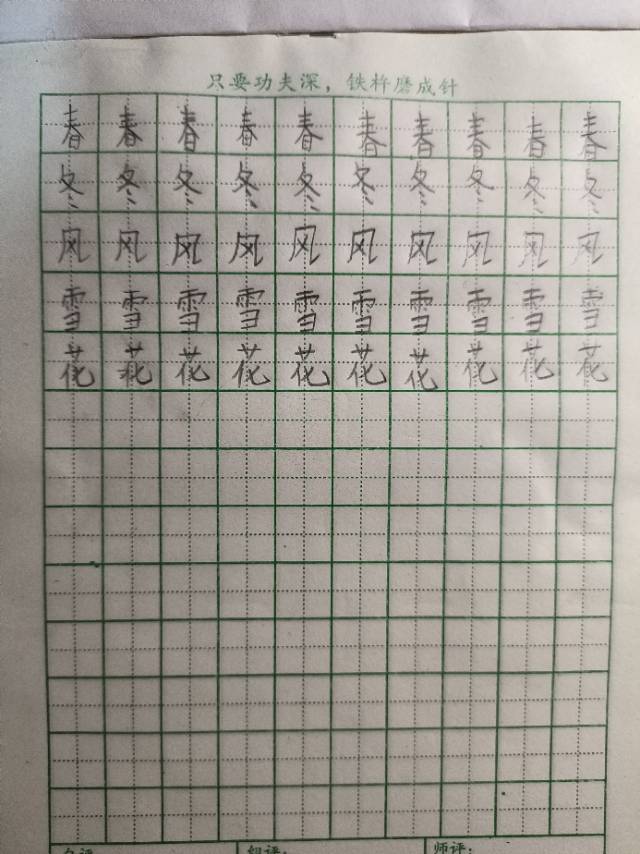 只要功夫深，铁杵磨成针
春春春春春春春春春春
冬冬冬冬冬冬冬冬冬冬
风风风风风风风风风风
雪雪雪雪雪雪雪雪雪雪
花花花花花花花花花花
自评 组评： 师评：